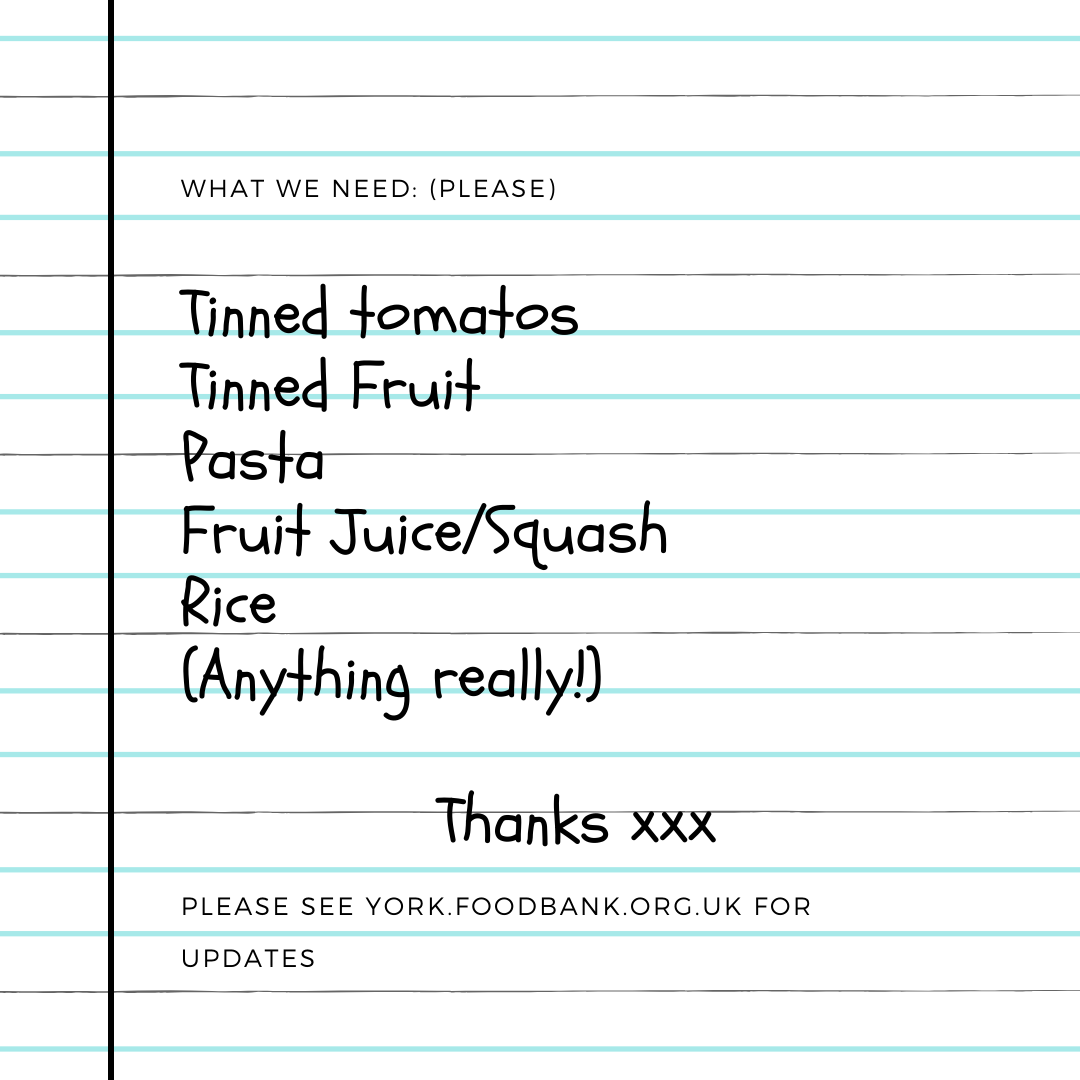 WHAT WE NEED: (PLEASE)
Tinned tomatos
Tinned Fruit
Pasta
Fruit Juice/Squash
Rice
(Anything really!)
Thanks xxx
PLEASE SEE YORK.FOODBANK.ORG.UK FOR
UPDATES